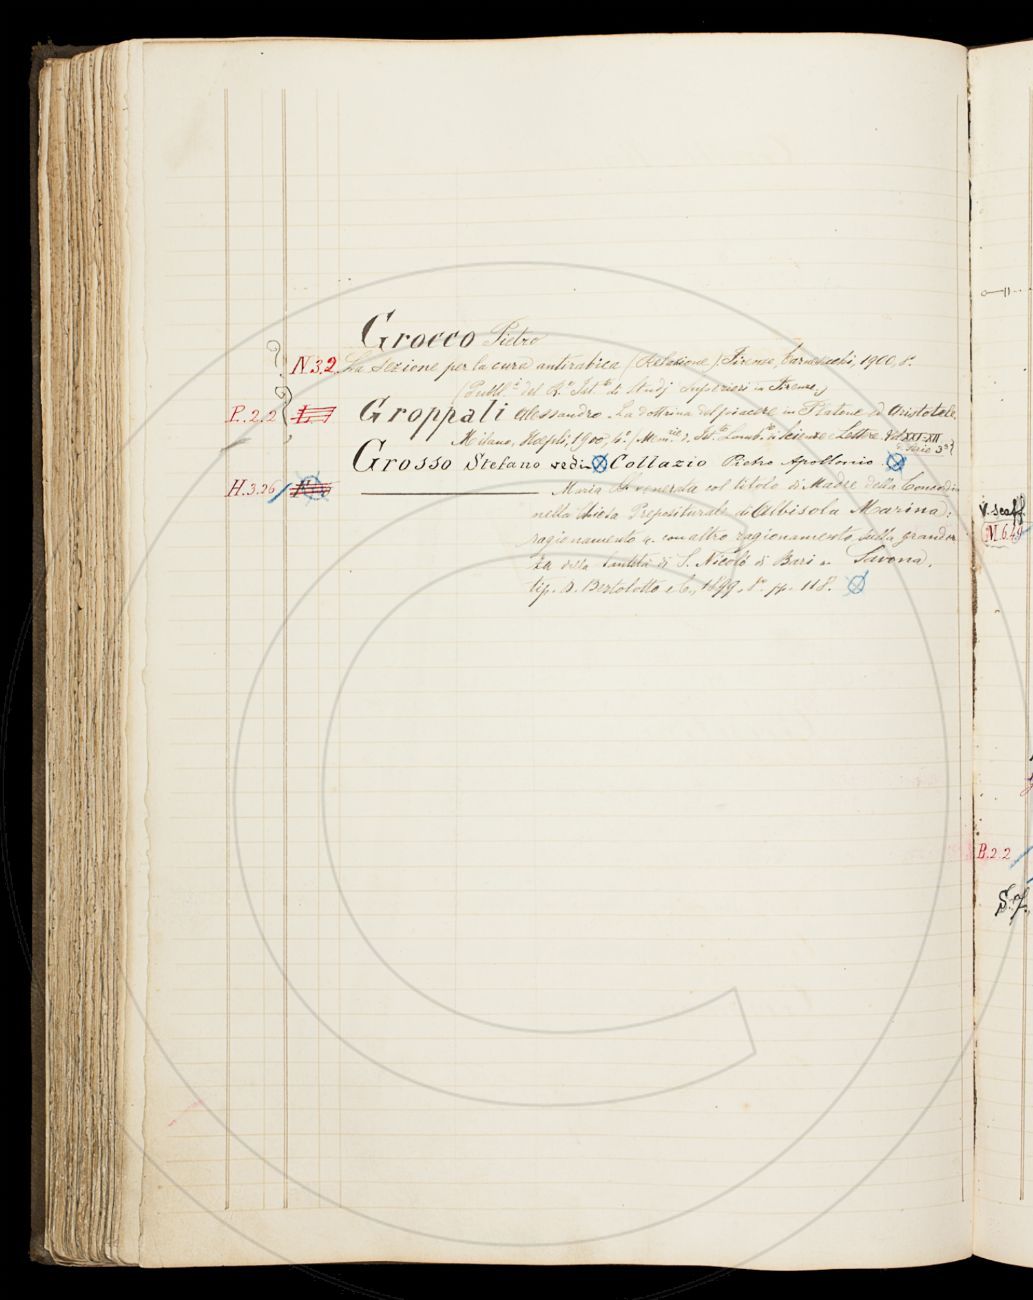 Grocco Pietro
N.3.2. La Sezione per la cura antirabica (Relazione). Firenze, Carnesecchi, 1900, 8º.
(Pubbl.e del R.o Ist.to di Studj Superiori in Firenze.)
P.2.2 Groppali Alessandro La dottrina del piacere in Platone ed Aristotele.
Milano, Hoepli, 1900, 4º. (Mem.rie d. Ist.to Lomb.do di Scienze e Lettere Vol XXI-XII
d. Serie 3ª)
Grosso Stefano vedi Collazio Pietro Apollonio.
H.3.26 Maria SS. venerata col titolo di Madre della Concordia
nella Chiesa Prepositurale di Albisola Marina:
ragionamento con altro ragionamento sulla grandez-
za della Santità di S. Nicolò di Bari Savona,
tip. D. Bertolotto e C., 1899. 8º. pp. 118.
V. scaff.
M 6.49
B.2.2
S.7.